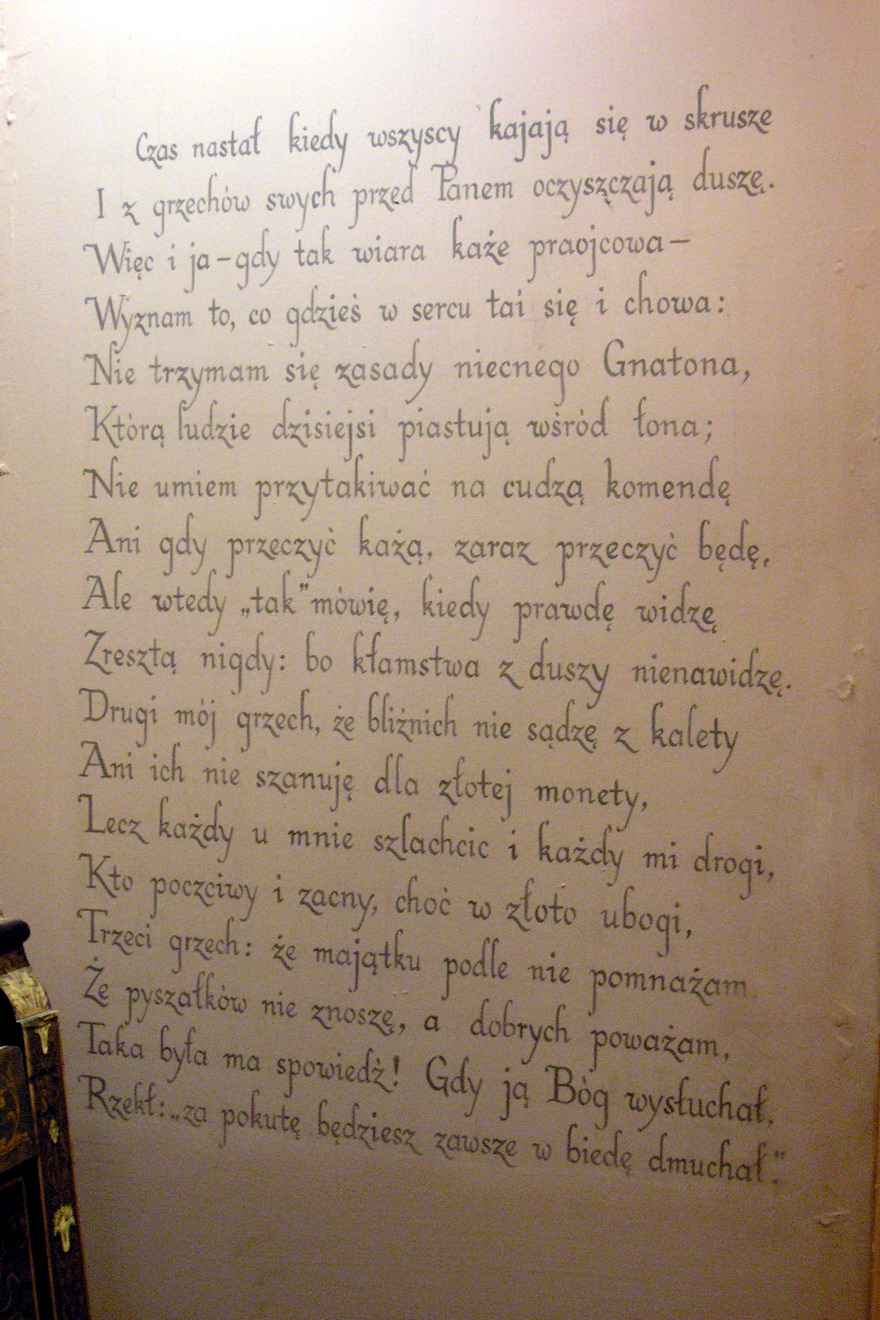 Czas nastał kiedy wszyscy kajają się w skrusze
I z grzechów swych przed Panem oczyszczają duszę.
Więc i ja – gdy tak wiara każe praojcowa –
Wyznam to, co gdzieś w sercu tai się i chowa:
Nie trzymam się zasady niecnego Gnatona,
Którą ludzie dzisiejsi piastują wśród łona;
Nie umiem przytakiwać na cudzą komendę
Ani gdy przeczyć każą, zaraz przeczyć będę,
Ale wtedy „tak" mówię, kiedy prawdę widzę
Zresztą nigdy: bo kłamstwa z duszy nienawidzę.
Drugi mój grzech, że bliźnich nie sądzę z kalety
Ani ich nie szanuję dla złotej monety,
Lecz każdy u mnie szlachcic i każdy mi drogi,
Kto poczciwy i zacny, choć w złoto ubogi,
Trzeci grzech: że majątku podle nie pomnażam
Że pyszałków nie znoszę, a dobrych poważam,
Taka była ma spowiedź! Gdy ją Bóg wysłuchał,
Rzekł: „za pokutę będziesz zawsze w biedę dmuchał."